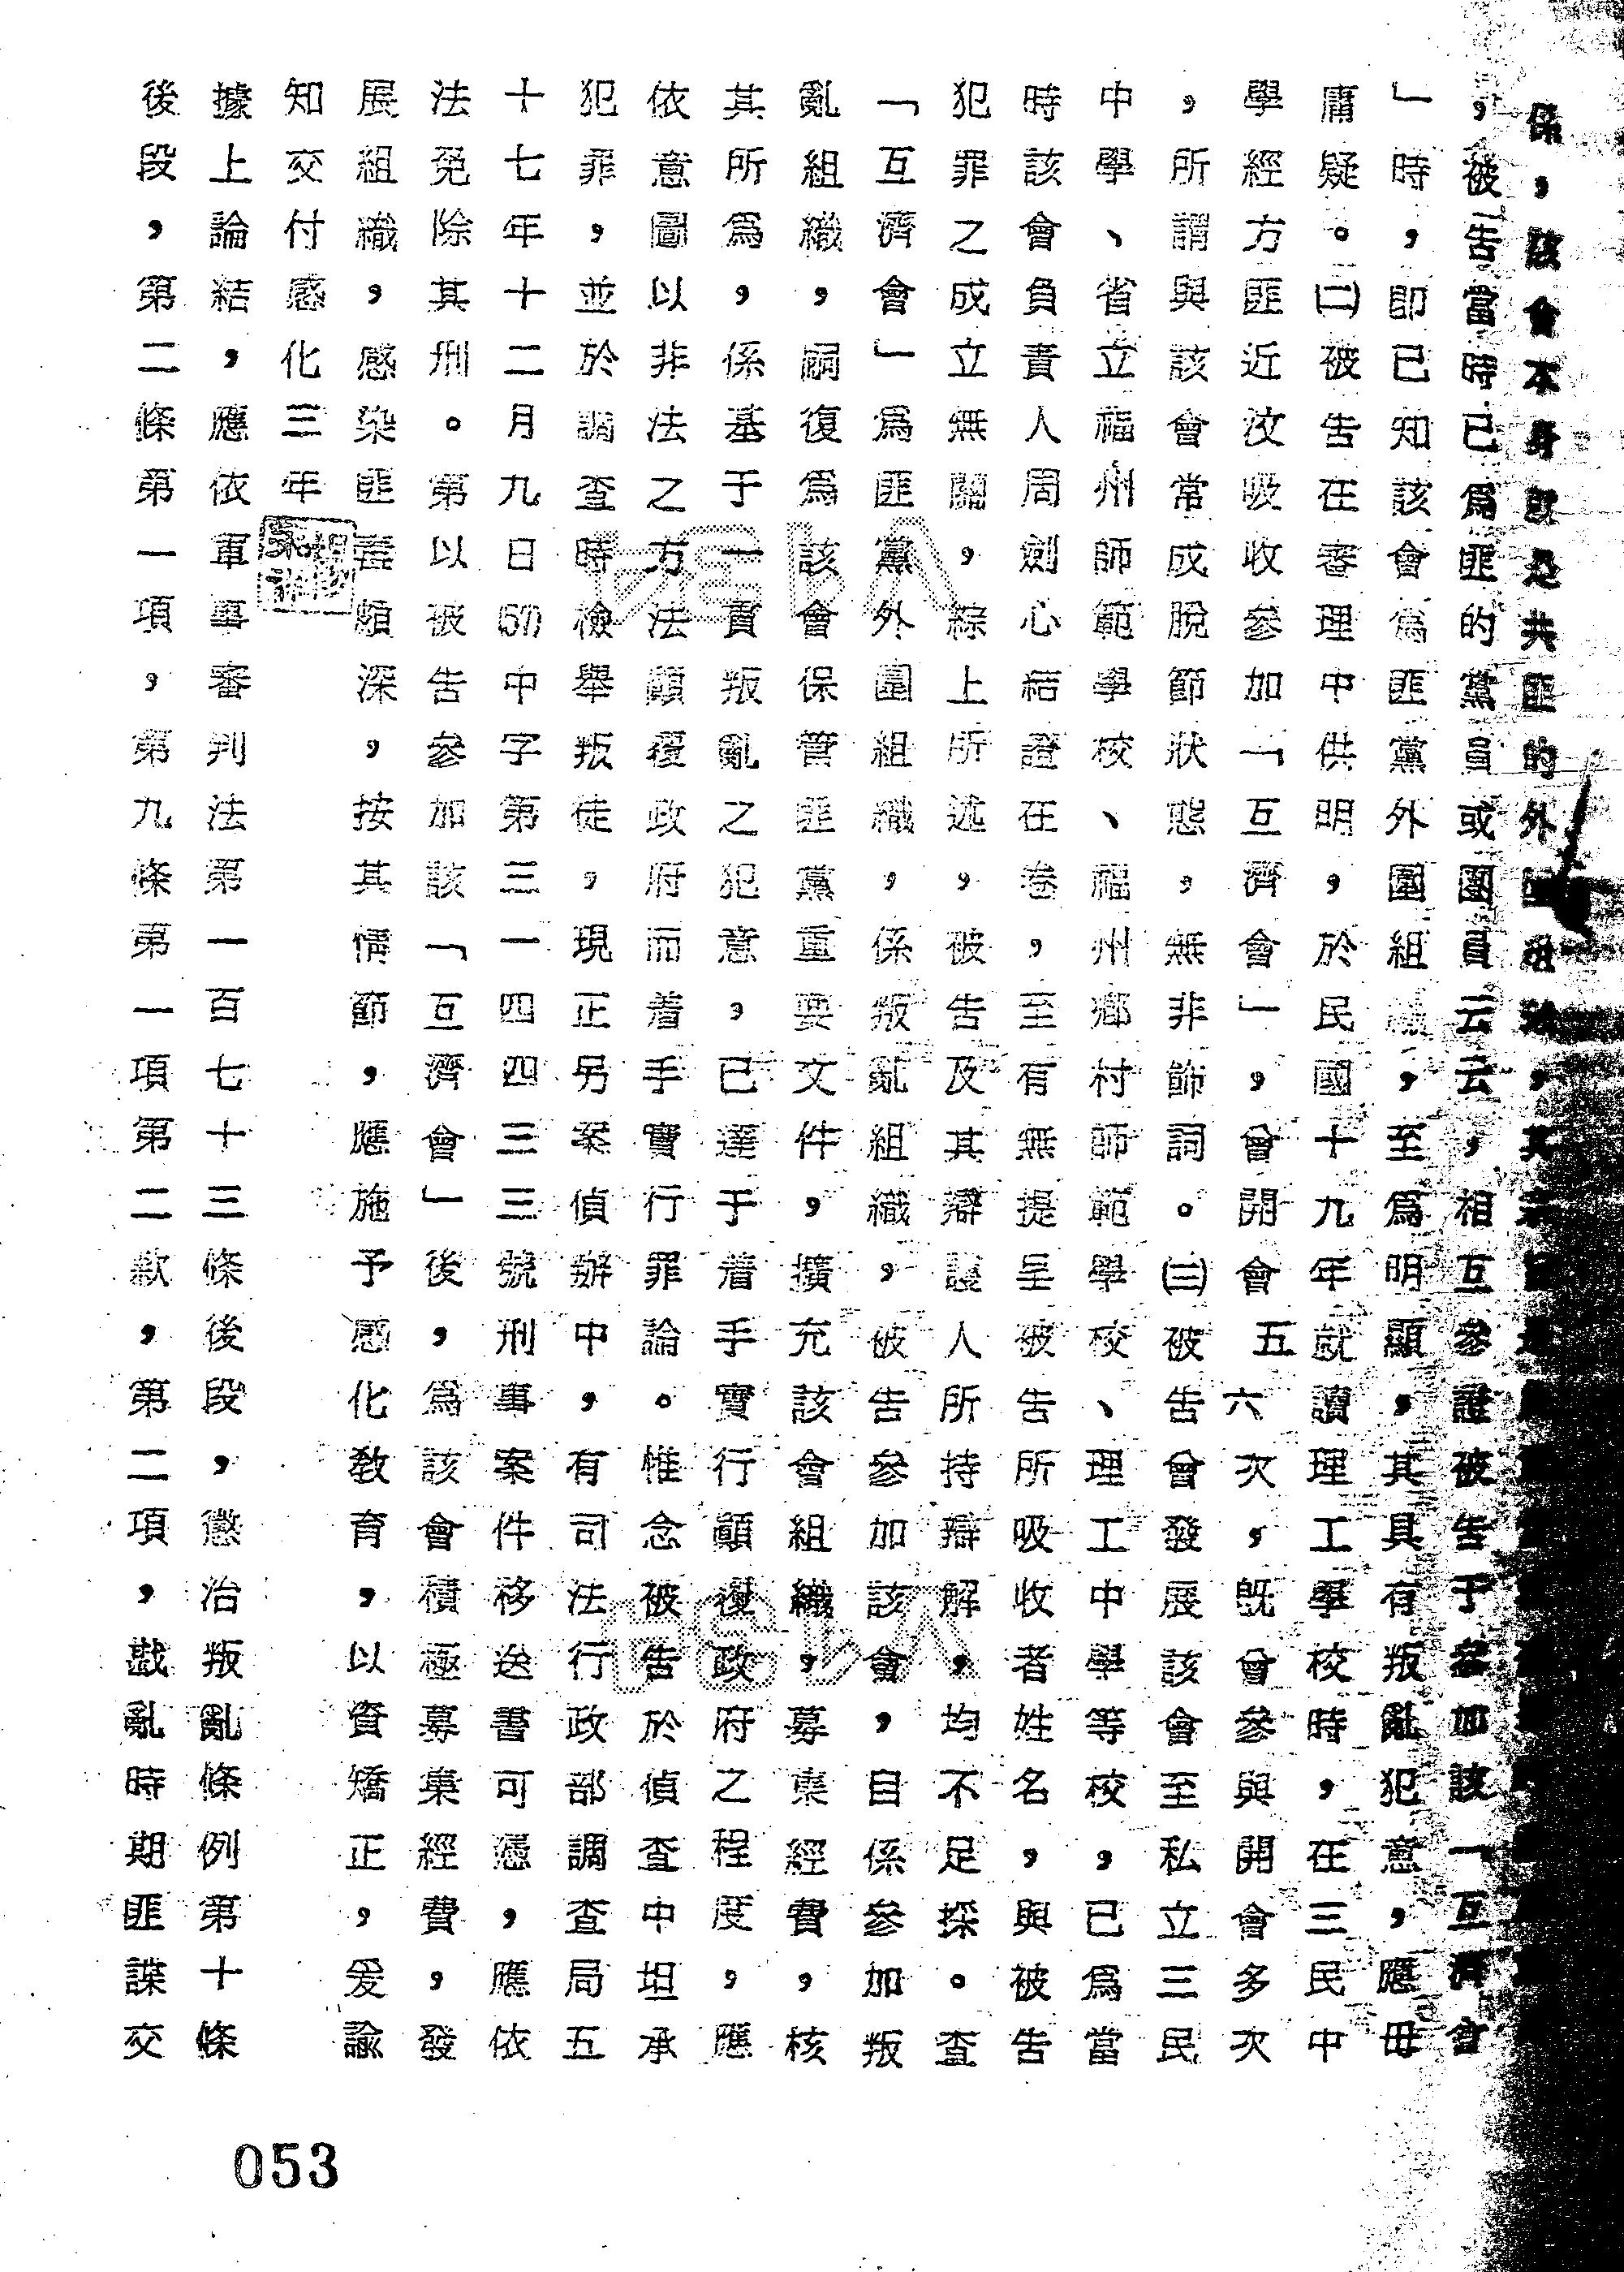 係，該會本身既是共匪的外
，被告當時已爲匪的黨員或團員云云，相互參證被告于參加該「互濟會
」時，即已知該會爲匪黨外圍組織，至爲明顯，其具有叛亂犯意，應毋
庸疑。㈡被告在審理中供明，於民國十九年就讀理工學校時，在三民中
學經方匪近汶吸收參加「互濟會」，曾開會五六次，既曾參與開會多次
，所謂與該會常成脫節狀態，無非飾詞。㈢被告曾發展該會至私立三民
中學、省立福州師範學校、福州鄉村師範學校、理工中學等校，已爲當
時該會負責人周劍心結證在卷，至有無提呈被告所吸收者姓名，與被告
犯罪之成立無關，綜上所述，被告及其辯護人所持辯解，均不足採。查
「互濟會」爲匪黨外圍組織，係叛亂組織，被告參加該會，目係參加叛
亂組織，嗣復爲該會保管匪黨重要文件，擴充該會組織，募集經費，核
其所爲，係基于一貫叛亂之犯意，已達于着手實行顛覆政府之程度，應
依意圖以非法之方法顛覆政府而着手實行罪論。惟念被告於偵查中坦承
犯罪，並於調查時檢舉叛徒，現正另案偵辦中，有司法行政部調查局五
十七年十二月九日(57)中字第三一四四三三號刑事案件移送書可憑，應依
法免除其刑。第以被告參加該「互濟會」後，爲該會積極募集經費，發
展組織，感染匪毒頗深，按其情節，應施予感化教育，以資矯正，爰諭
知交付感化三年
據上論結，應依軍事審判法第一百七十三條後段，懲治叛亂條例第十條
後段，第二條第一項，第九條第一項第二款，第二項，戡亂時期匪諜交
053